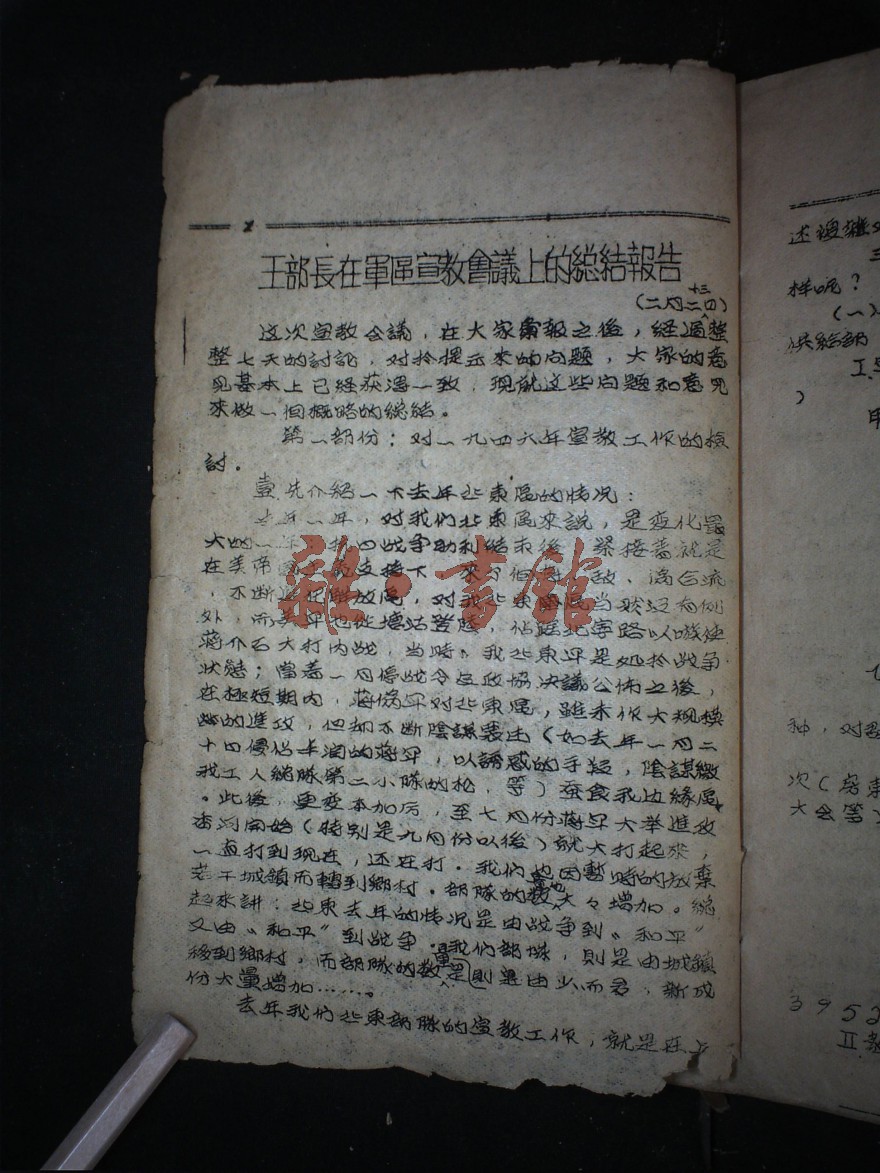 1
王部長在軍區宣教會議上的總結報告
十三
(二月二四)
这次宣教会議，在大家彙報之後，經過整
整七天的討論，对於提出來的问題，大家的意
见基本上已經获得一致，现就这些问題和意见
來做一個概略的總結。
第一部份：对一九四六年宣教工作的檢
討。
首先介紹一下去年北東區的情况：
去年一年，对我們北東區來說，是变化最
大的一年：抗日战争勝利结束後，緊接着就是
在美帝國主義支持下，來了個
，不断進犯解放區，对我北東區當然沒有例
外，而美军也從塘沽登陸，佔踞北寧路以嗾使
蒋介石大打内战，当時，我北東军是処於战争
状態；當着一月停战令与政協决議公佈之後，
在極短期内，蒋偽军对北東區，雖未作大规模
的進攻，但却不断陰謀襲击（如去年一月二
十四侵佔丰润的蒋军，以誘惑的手段，陰謀繳
我工人總隊第二小隊的枪，等）蚕食我边緣區
。此後，更变本加厉，至七月份蒋军大举進攻
香河開始（特别是九月份以後）就大打起來，
一直打到现在，还在打。我們也因暫時的放棄
若干城鎮而轉到鄉村。部隊的數量也大々增加。總
起來講：北東去年的情况是由战争到“和平”
又由“和平”到战争。我們部隊，則是由城鎮
移到鄉村，而部隊的數量則是由少而多，新成
份大量增加……。
去年我們北東部隊的宣教工作，就是在上
述複雜
三
样呢？
(一)
供給部
工
)
甲
七
种，对
次（房東
大会等
3952
II
雜·書館